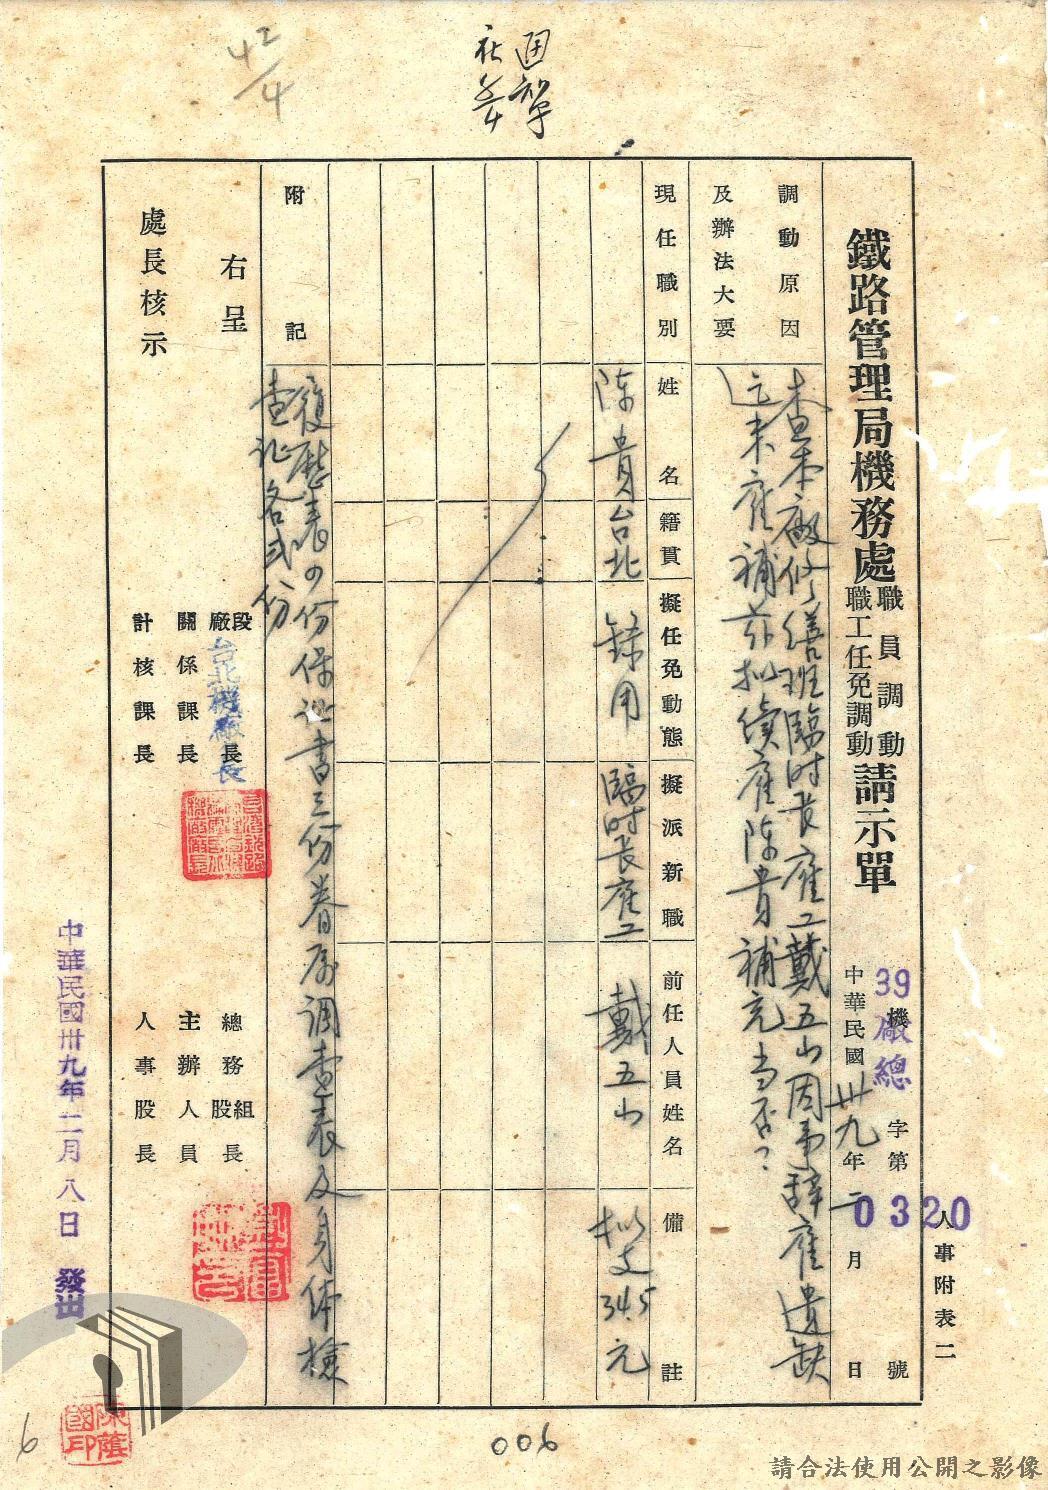 42/4
人事附表二
鐵路管理局機務處
職員調動
職工任免調動
請示單
39機廠總字第0320號
中華民國卅九年二月 日
調動原因
及辦法大要
查本廠修繕班臨时長雇工戴五山因事辞雇遺缺
迄未雇補茲拟續雇陈貴補充当否?
現任職別
姓名
籍貫
擬任免動態
擬派新職
前任人員姓名
備註
陈貴
台北
錄用
臨时長雇工
戴五山
拟支34.5元
附記
履歷表四份保证書三份眷属調查表及身体檢
查证各弍份
右呈
處長核示
段
廠長
台北機廠廠長
關係課長
計核課長
總務組
股長
主辦人員
人事股長
中華民國卅九年二月八日 發出
陳蔭國印
6
006
請合法使用公開之影像